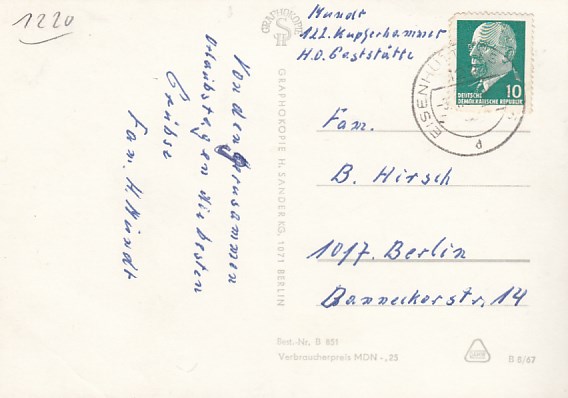 1220
Von den grausammen
Urlaubstagen die besten
Grüße
Fam. H. Mundt
GRAPHOKOPIE
GRAPHOKOPIE H. SANDER KG, 1071 BERLIN
Mundt
122. Kupferhammer
H.O. Gaststätte
DEUTSCHE
DEMOKRATISCHE REPUBLIK
10
EISENHÜ
d
Fam.
B. Hirsch
1017. Berlin
Bannekorstr. 14
Best.-Nr. B 851
Verbraucherpreis MDN -,25
B 8/67